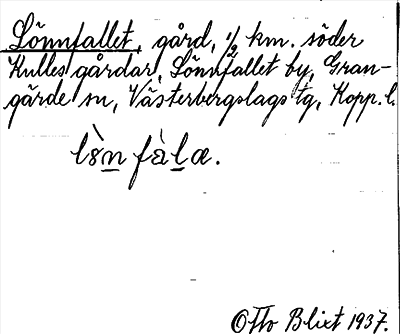 Lönnfallet, gård, 1/2 km. söder
Kulles gårdar, Lönnfallet by, Gran-
gärde sn, Västerbergslags tg, Kopp. l.
lo̊n fàlæ.
Otto Blixt 1937.